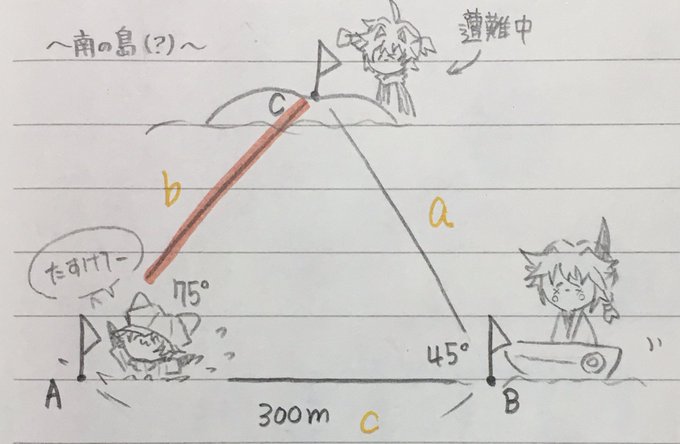 〜南の島(?)〜
遭難中
C
b
a
たすけてー
75°
45°
A
B
300m
c